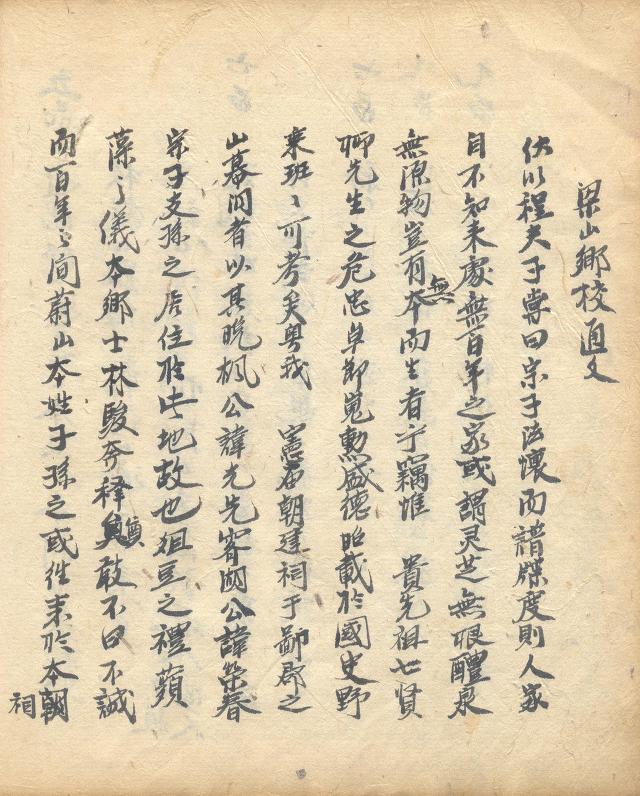 梁山鄕校通文
伏以程夫子嘗曰宗子法壞而譜牒度則人家
自不知來處無百年之家或謂灵芝無根醴泉
無源物豈有無本而生者乎竊惟 貴先祖七賢
先生之危忠卓節嵬勳盛德昭載於國史野
乘班〻可考矣粤我 憲廟朝建祠于鄙郡之
山暮洞者以其晩楓公諱光先審湖公諱榮春
宗子支孫之居住於此地故也俎豆之禮蘋
藻之儀本鄕士林駿奔釋奠敢不曰不誠
而百年之間蔚山本姓子孫之或徃來於本
祠